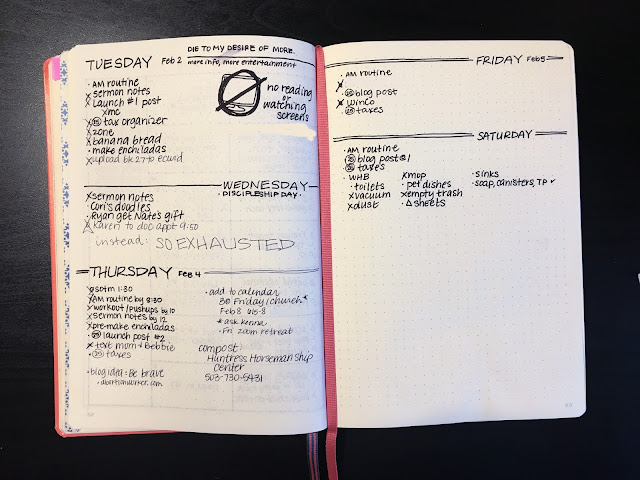 DIE TO MY DESIRE OF MORE.
TUESDAY Feb 2 more info, more entertainment
· AM routine
x sermon notes
x Launch #1 post
x mc
x 15 tax organizer
x zone
x banana bread
· make enchiladas
x upload bk 27 to ecwid
no reading
or
watching
screens
WEDNESDAY
· DISCIPLESHIP DAY ·
x sermon notes
· Cori's doodles
· Ryan get Nate's gift
Karen to doc appt 9:50
instead: SO EXHAUSTED
THURSDAY Feb 4
sotm 1:30
x AM routine by 8:30
x workout/pushups by 10
x sermon notes by 12
x pre-make enchiladas
· 25 launch post #2
x text mom & Debbie
· 25 taxes
· blog idea: Be brave
· abortionworker.com
· add to calendar
Friday/church *
Feb 8 6:15-8
* ask kenna
· Fri zoom retreat
compost:
Huntress Horsemanship
Center
503-730-5431
FRIDAY Feb 5
· AM routine
x
· 25 blog post
x WinCo
25 taxes
SATURDAY
· AM routine
· 25 blog post @1
· 25 taxes
· WHB
· toilets
x vacuum
x dust
x mop
· pet dishes
x empty trash
· Δ sheets
· sinks
· soap, canisters, TP